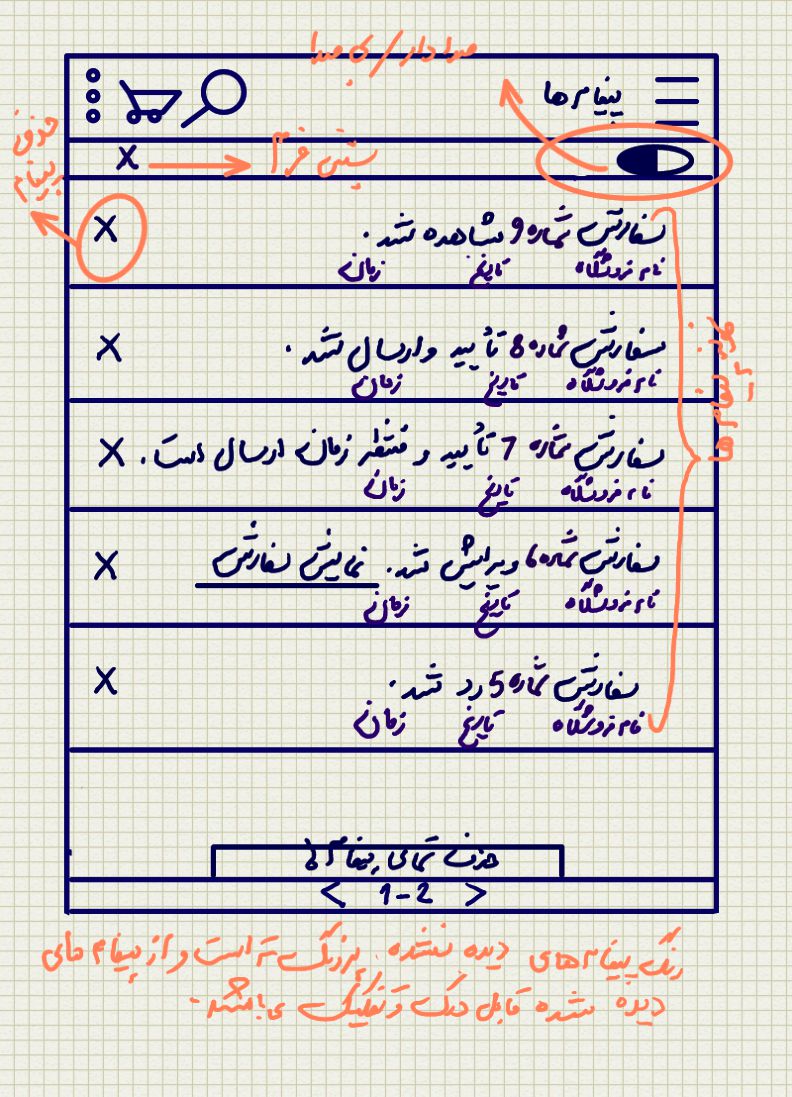 صدادار/بی صدا
پیغام ها
X
بستن فرم
حذف
پیغام
سفارش شماره 9 مشاهده شد.
X
نام فروشگاه تاریخ زمان
سفارش شماره 8 تأیید و ارسال شد.
X
نام فروشگاه تاریخ زمان
سفارش شماره 7 تأیید و منتظر زمان ارسال است.
X
نام فروشگاه تاریخ زمان
سفارش شماره 6 ویرایش شد. نمایش سفارش
X
نام فروشگاه تاریخ زمان
سفارش شماره 5 رد شد.
X
نام فروشگاه تاریخ زمان
پیغام ها
حذف تمامی پیغام ها
< 1-2 >
رنگ پیغام های دیده نشده پررنگ تر است و از پیغام های
دیده شده قابل درک و تفکیک می باشد.